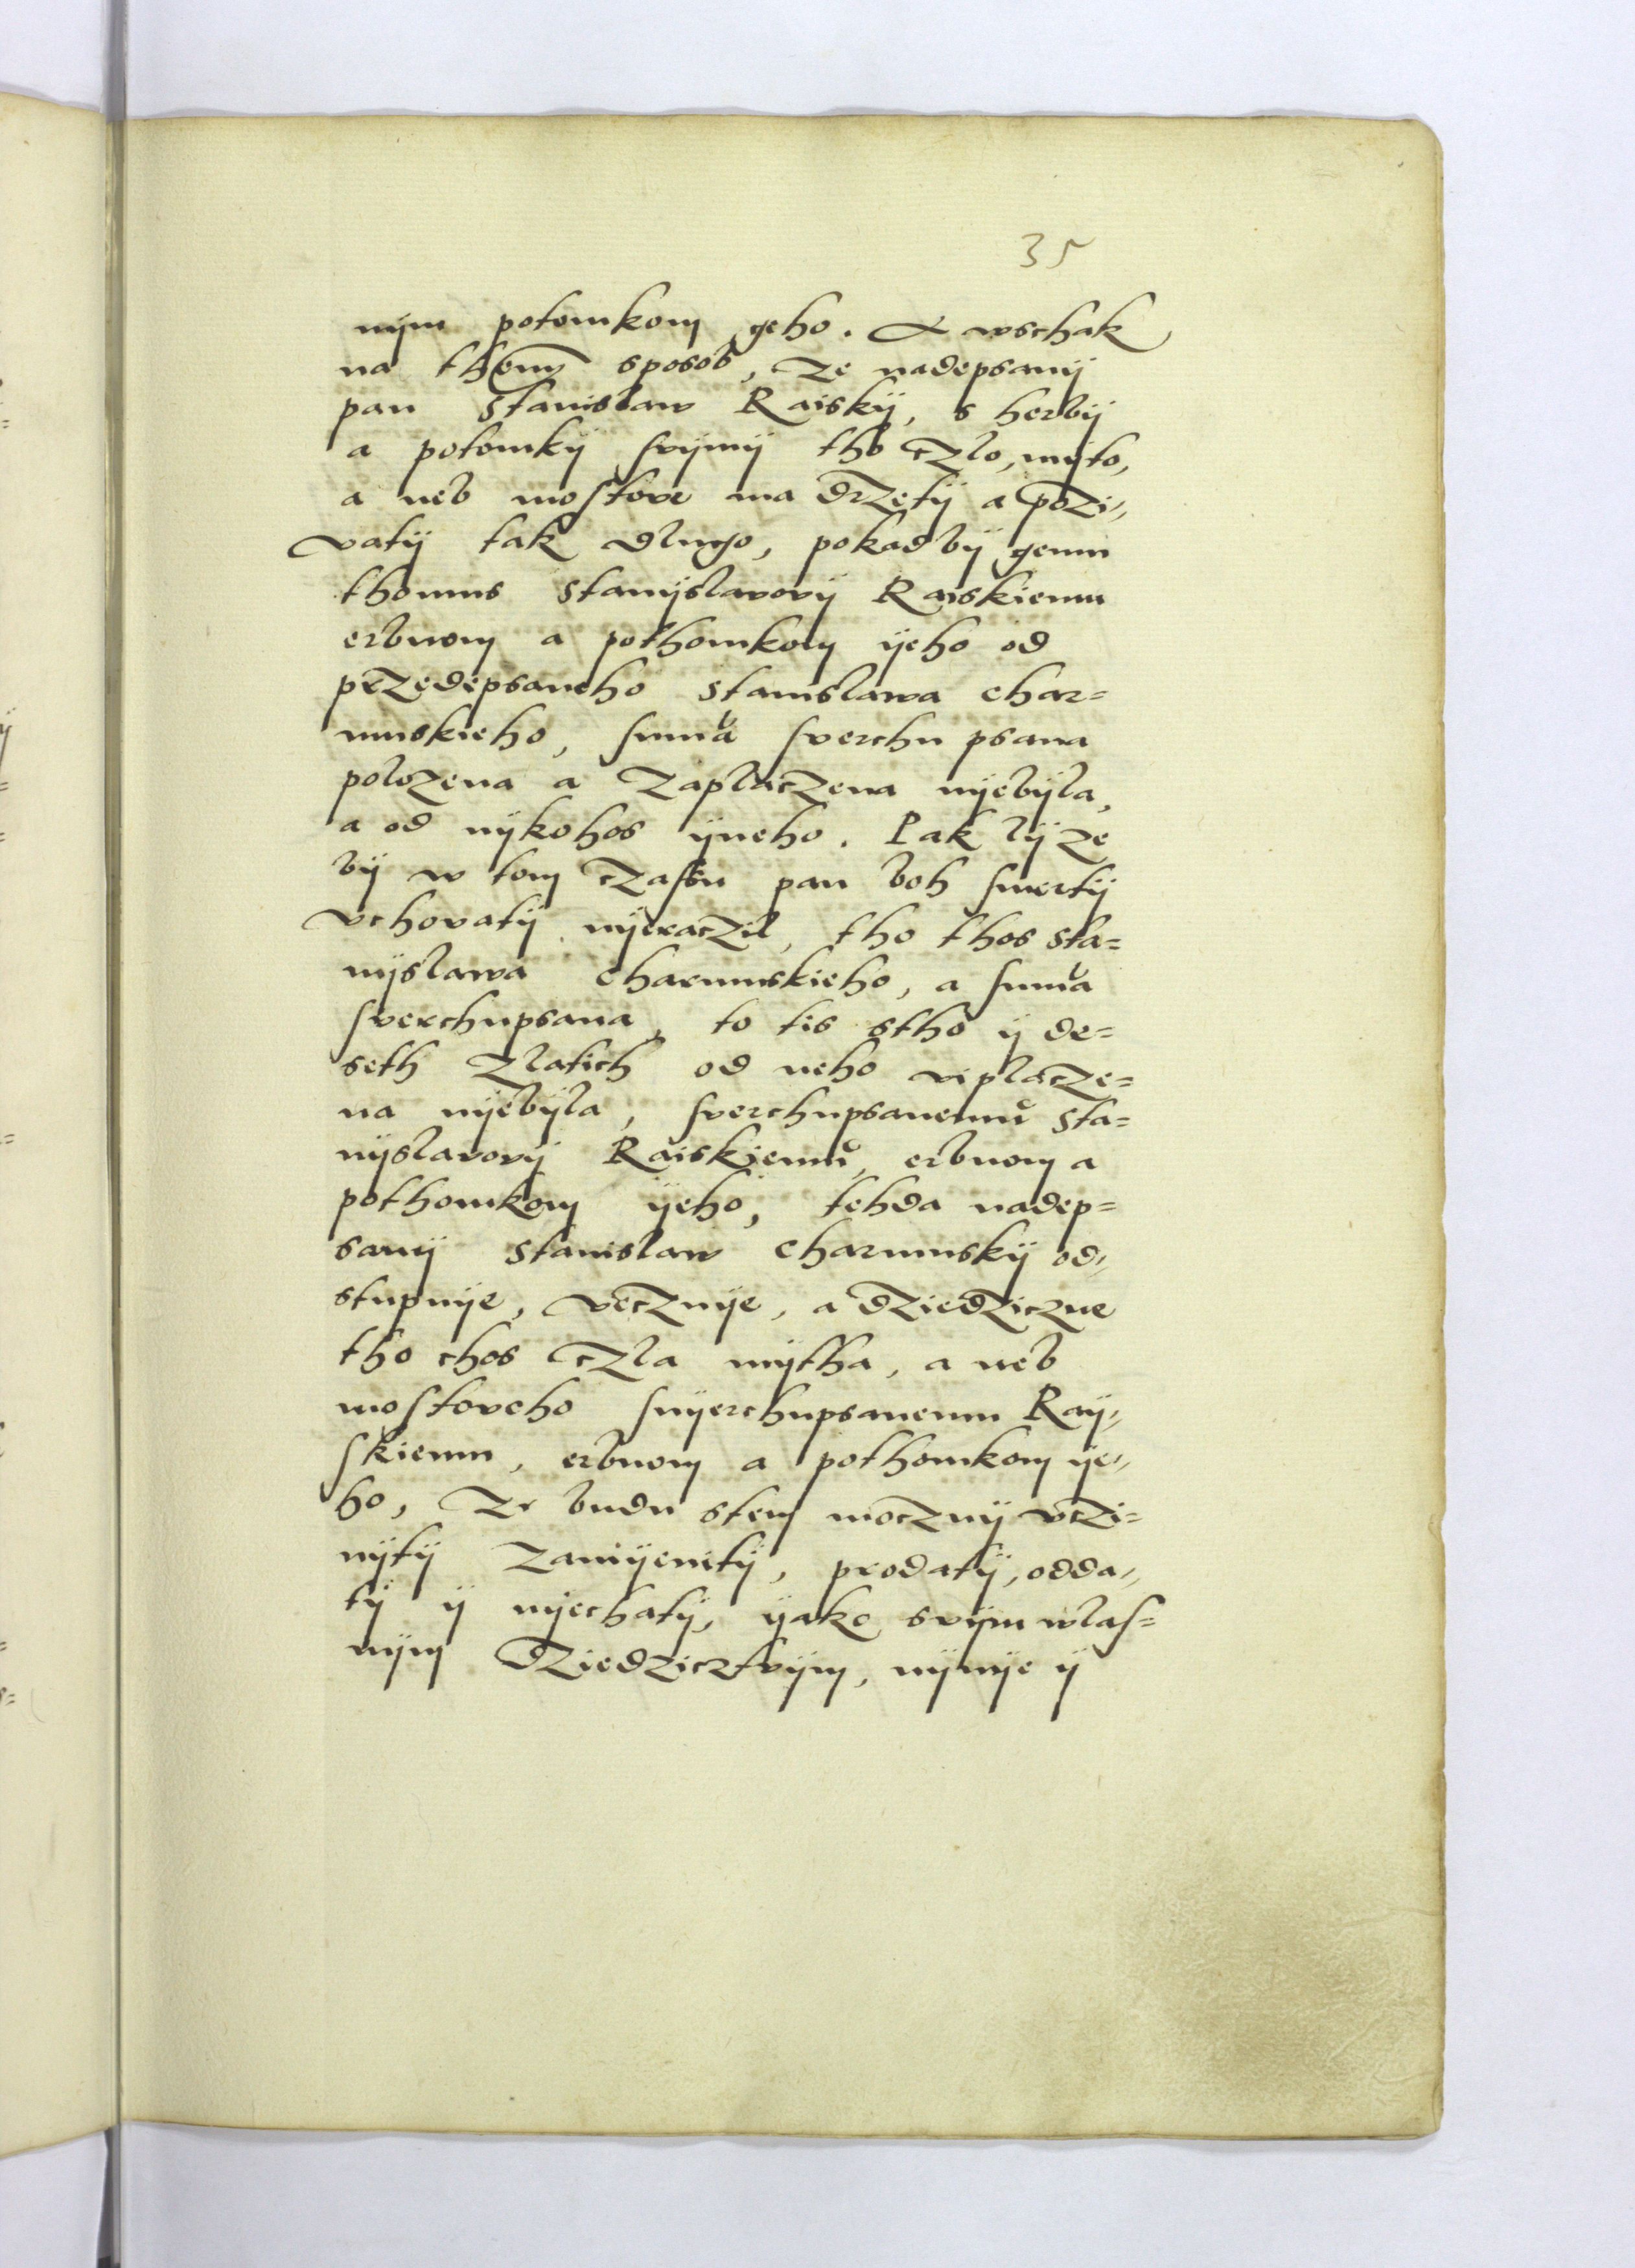 35
nÿm potomkom geho. A wschak
na them sposob, ze nadepsanÿ
pan Stanislaw Raiskÿ, s herbÿ
a potomkÿ svÿmÿ tho czlo, mÿto,
a neb mostove ma drzetÿ a pozi„
vatÿ tak dlugo, pokad bÿ gemu
thomus Stanÿslavovÿ Raiskiemu
erbuom a pothomkom ÿeho od
przedepsaneho Stanislawa Char=
nuskieho, suma sverchu psana
polozena a zaplaczena nÿebÿla,
a od nÿkohos ÿneho. Pak lÿ ze
bÿ w tom czassu pan boh smertÿ
vchovatÿ nÿeraczil, tho thos Sta=
nÿslawa Charnuskieho, a suma
sverchupsana, to tis stho ÿ de=
seth zlatich od neho viplacze=
na nÿebÿla, sverchupsanemu Sta=
nÿslavovÿ Raiskiemu, erbuom a
pothomkom ÿeho, tehda nadep=
sanÿ Stanislaw Charnuskÿ od„
stupuÿe, vecznÿe, a dziedziczne
tho thos czla mÿtha, a neb
mostoveho svÿerchupsanemu Raÿ„
skiemu, erbuom a pothomkom ÿe„
ho, ze budu stem mocznÿ vczi=
nÿtÿ zamÿenitÿ, prodatÿ, odda„
tÿ ÿ nÿechatÿ, ÿake svÿm wlas=
nÿm dziedzicztvÿm, nÿnÿe ÿ